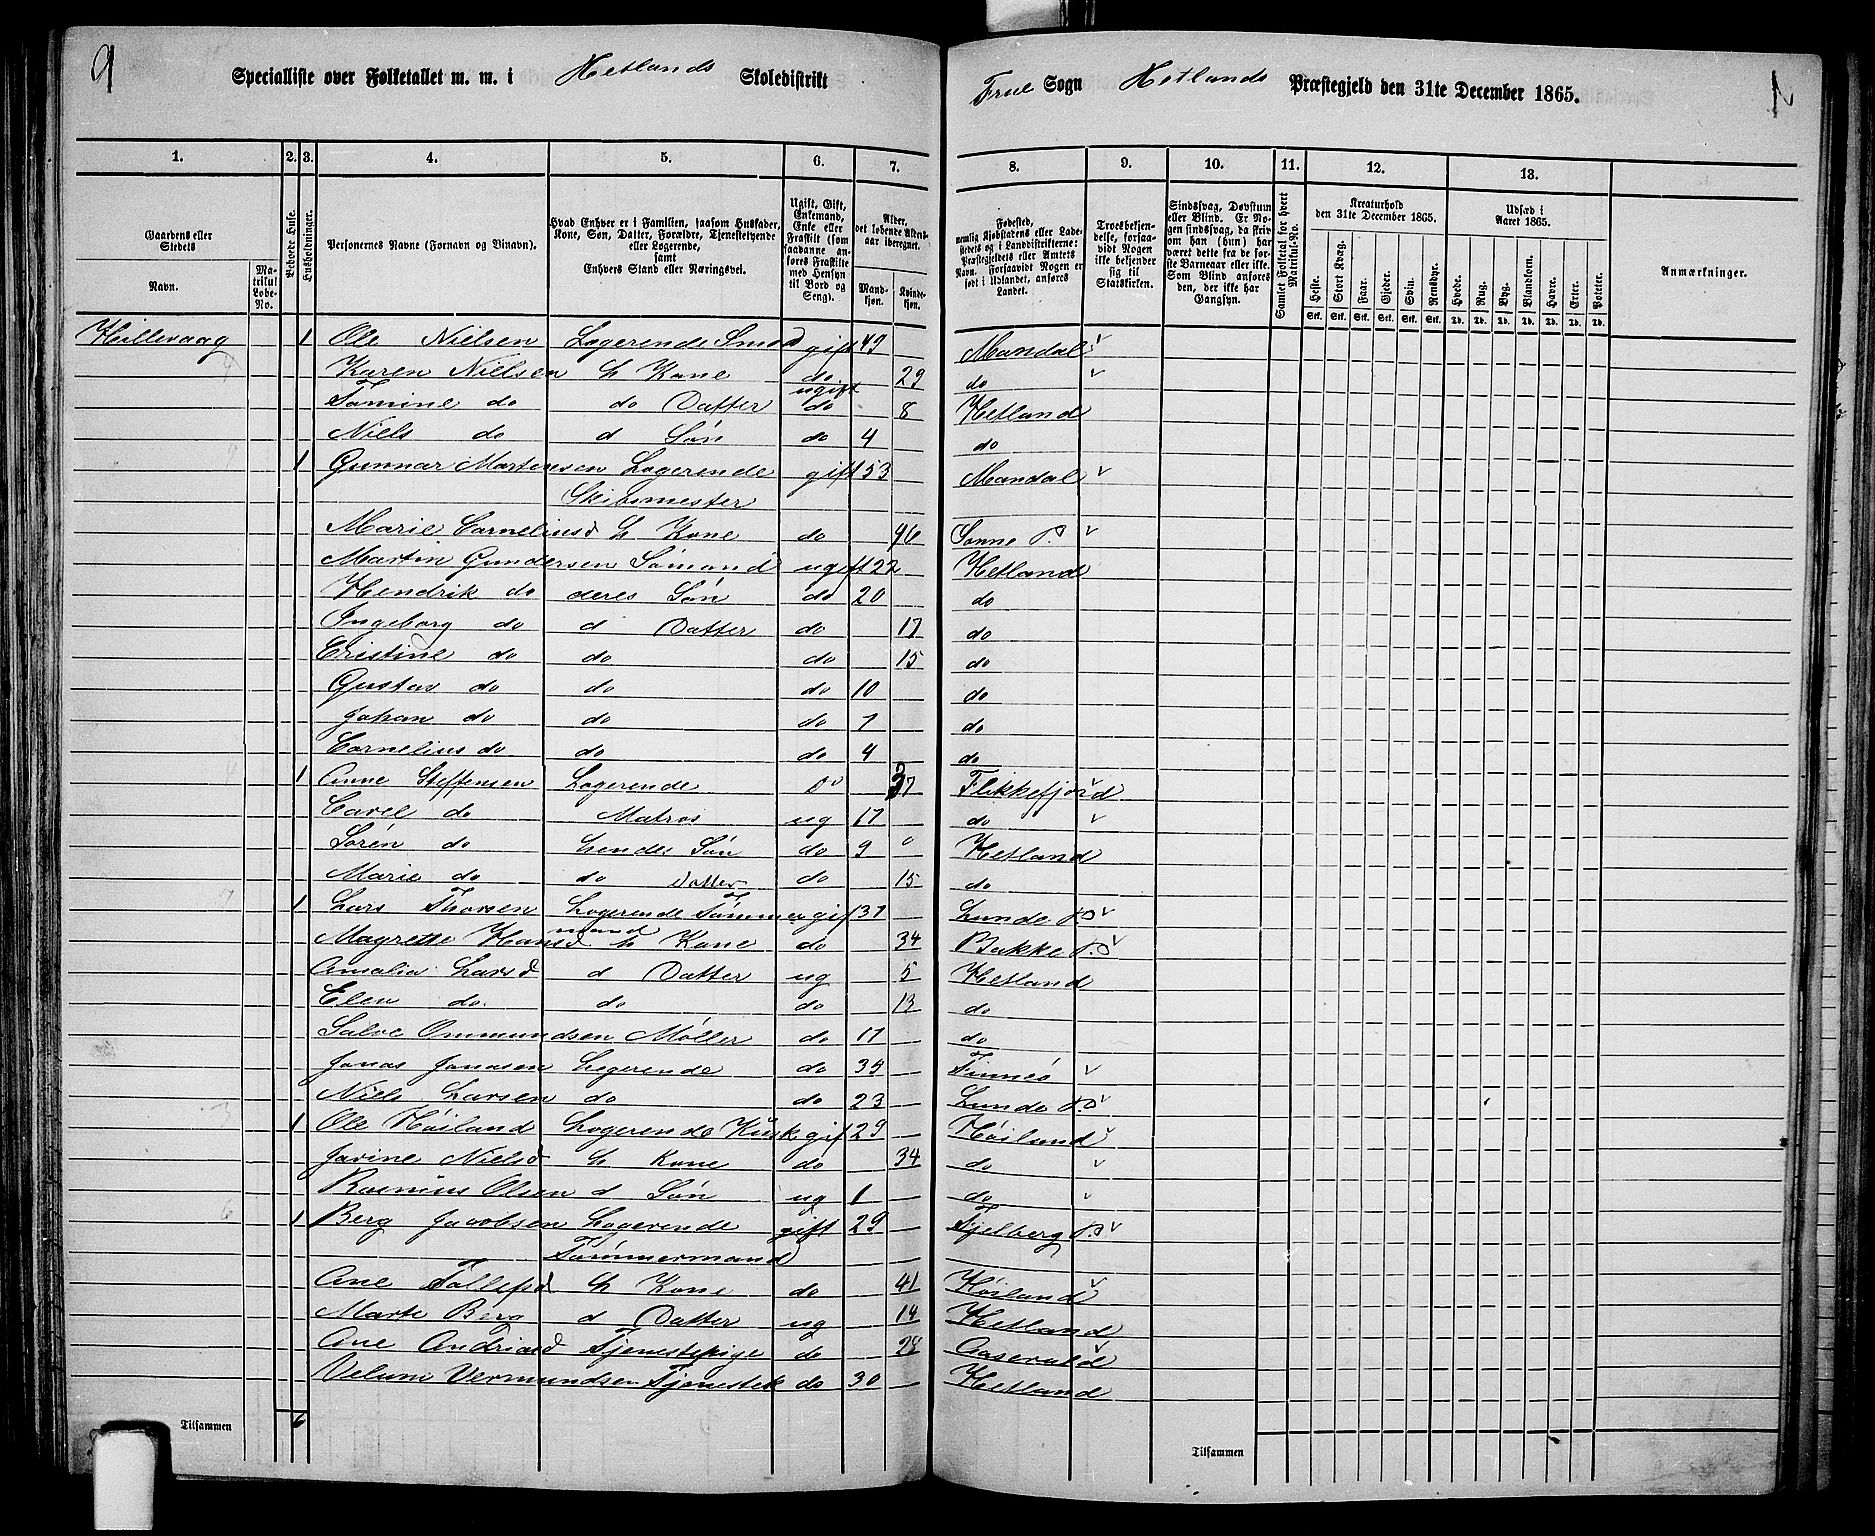 9
Specialliste over Folketallet m. m. i Hetlands Skoledistrikt
Frue Sogn Hetlands Præstegjeld den 31te December 1865.
1. 2. 3. 4. 5. 6. 7. 8. 9. 10. 11. 12. 13.
Gaardens eller Stedets
Navn.
Matrikul Løbe-No.
Beboede Huse.
Husholdninger.
Personernes Navne (Fornavn og Tilnavn).
Hvad Enhver er i Familien, saasom Husfader, Kone, Søn, Datter, Forældre, Tjenestetyende eller Logerende, samt Enhvers Stand eller Næringsvei.
Ugift, Gift, Enkemand, Enke eller Fraskilt (som saadanne anføres Fraskilte med Hensyn til Bord og Seng).
Alder, det løbende Aldersaar iberegnet.
Mandkjøn.
Kvindekjøn.
Fødested, nemlig Kjøbstadens eller Ladestedets og i Landdistrikterne: Præstegjeldets eller Amtets Navn. Forsaavidt Nogen er født i Udlandet, anføres Landet.
Troesbekjendelse, forsaavidt Nogen ikke bekjender sig til Statskirken.
Sindssvag, Døvstum eller Blind. Er Nogen sindssvag, da skrives om han (hun) har været dette fra de første Barneaar eller ikke. Som Blind anføres den, der ikke har Gangsyn.
Samlet Folketal for hvert Matrikul-No.
Kreaturhold den 31te December 1865.
Heste. Stort Kvæg. Faar. Gjeder. Svin. Rensdyr.
Stk. Stk. Stk. Stk. Stk. Stk.
Udsæd i Aaret 1865.
Hvede. Rug. Byg. Blandkorn. Havre. Erter. Poteter.
Td. Td. Td. Td. Td. Td. Td.
Anmærkninger.
Hillevaag 1 Ole Nielsen Logerende Smed gift 49 Mandal
Karen Nielsen h Kone do 29 do
Tomine do do Datter ugift do 8 Hetland
Niels do d Søn do 4 do
1 Gunnar Martensen Logerende gift 53 Mandal
Skibsmester
Marie Corneliusd h Kone do 46 P.
Martin Gundersen Sømand ugift 22 Hetland
Hendrik do deres Søn do 20 do
Ingeborg do d Datter do 17 do
Cristine do do do 15 do
Gustav do do do 10 do
Johan do do do 7 do
Cornelius do do do 4 do
1 Anne Steffensen Logerende 37 Flikkefjord
Carel do Matros ug 17 do
Søren do hendes Søn do 9 Hetland
Marie do do Datter do 15 do
1 Lars Thorsen Logerende Tømmer gif 37 Lunde P.
mand
Magrette Hansd h Kone do 34 Bakke P.
Amalia Larsd d Datter ug 5 Hetland
Elen do do do 13 do
Salve Ommundsen Møller do 17 do
Jonas Jonasen Logerende do 35
Niels Larsen do do 23 Lunde P.
1 Ole Høiland Logerende Kusk gif 29 Høiland
Jorine Nielsd h Kone do 34 do
Rasmus Olsen d Søn ug 1 do
1 Berg Jacobsen Logerende gift 29 Fjelberg P.
Tømmermand
Ane Tollefsd h Kone do 41 Høiland
Marte Berg d Datter ug 14 Hetland
Ane Andriasd Tjenestepige do 28
Vermundsen Tjenestek do 30 Hetland
Tilsammen 6
Tilsammen